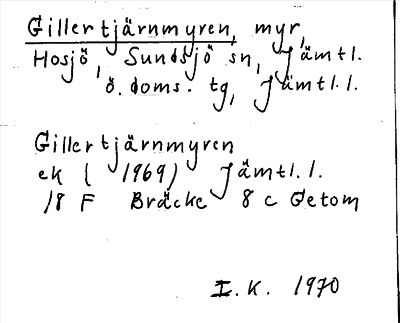 Gillertjärnmyren, myr,
Hosjö, Sundsjö sn, Jämtl.
ö. doms. tg, Jämtl. l.
Gillertjärnmyren
ek ( 1969) Jämtl. l.
18 F Bräcke 8 c Getom
I. K. 1970